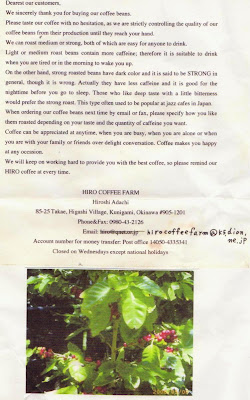 Dearest our customers,
We sincerely thank you for buying our coffee beans.
Please taste our coffee with no hesitation, as we are strictly controlling the quality of our
coffee beans from their production until they reach your hand.
We can roast medium or strong, both of which are easy for anyone to drink.
Light or medium roast beans contain more caffeine; therefore it is suitable to drink
when you are tired or in the morning to wake you up.
On the other hand, strong roasted beans have dark color and it is said to be STRONG in
general, though it is wrong. Actually they have less caffeine and it is good for the
nighttime before you go to sleep. Those who like deep taste with a little bitterness
would prefer the strong roast. This type often used to be popular at jazz cafes in Japan.
When ordering our coffee beans next time by email or fax, please specify how you like
them roasted depending on your taste and the quantity of caffeine you want.
Coffee can be appreciated at anytime, when you are busy, when you are alone or when
you are with your family or friends over delight conversation. Coffee makes you happy
at any occasion.
We will keep on working hard to provide you with the best coffee, so please remind our
HIRO coffee at every time.
HIRO COFFEE FARM
Hiroshi Adachi
85-25 Takae, Higashi Village, Kunigami, Okinawa #905-1201
Phone&Fax: 0980-43-2126
Email: hirocoffeefarm@k8.dion.
ne.jp
Account number for money transfer: Post office 14050-4335341
Closed on Wednesdays except national holidays